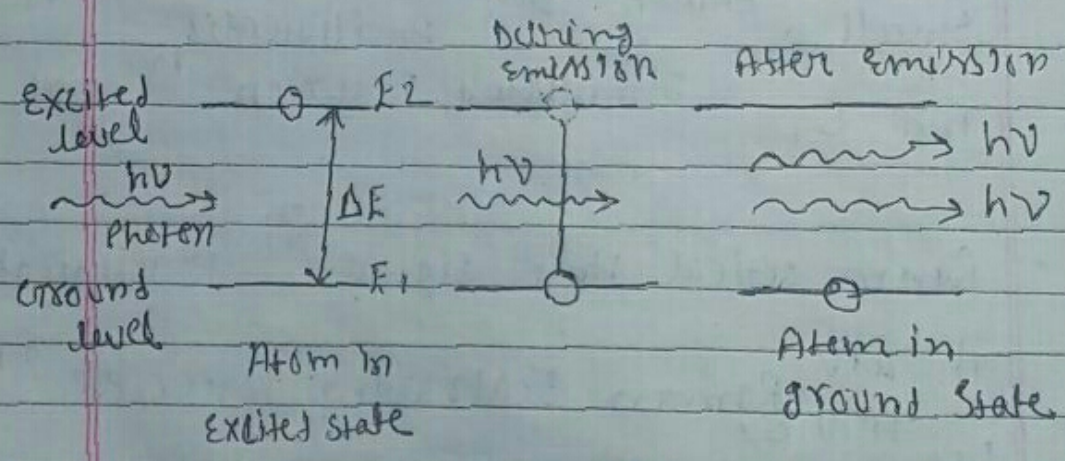 During
Emission
After Emission
Excited
level
E2
hν
hν
Photon
ΔE
hν
hν
Ground
level
E1
Atom in
Excited state
Atom in
ground State